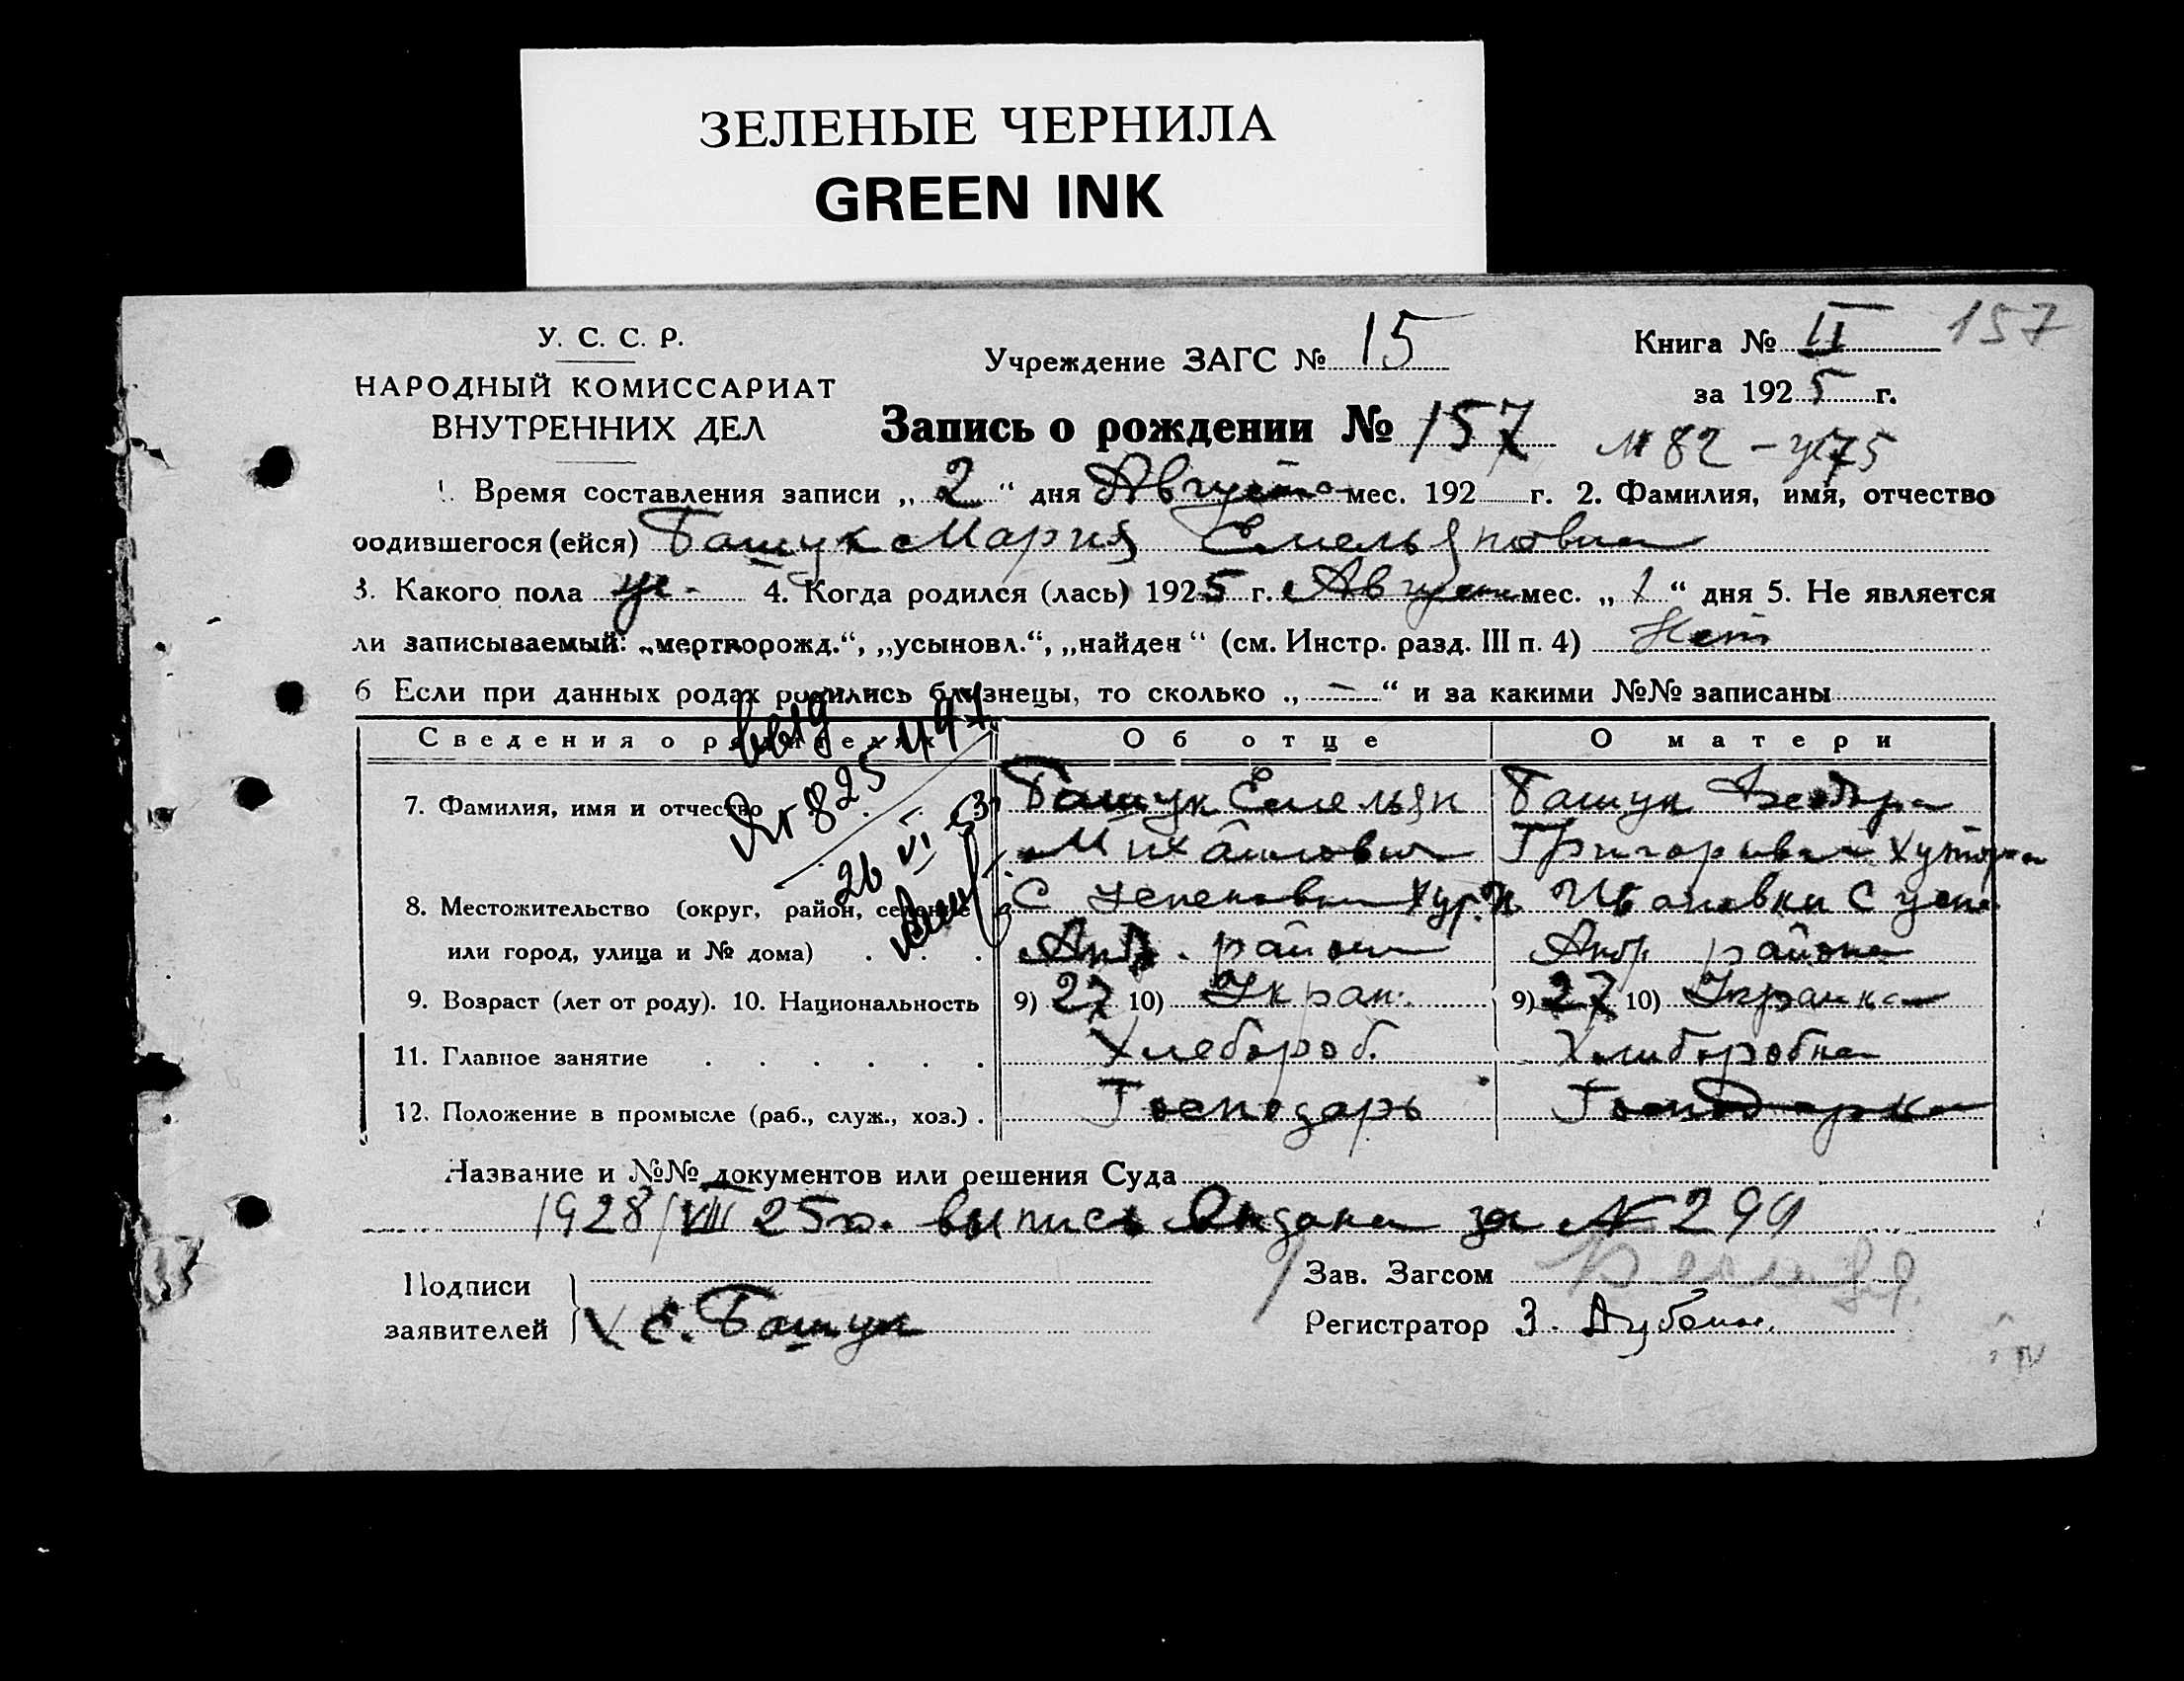 ЗЕЛЕНЫЕ ЧЕРНИЛА
GREEN INK
У. С. С. Р.
НАРОДНЫЙ КОМИССАРИАТ
ВНУТРЕННИХ ДЕЛ
Учреждение ЗАГС № 15
Книга № II 157
за 1925 г.
Запись о рождении № 157
№ 82
1. Время составления записи „ 2 “ дня Августа мес. 192 г. 2. Фамилия, имя, отчество
родившегося (ейся) Башук Мария Емельяновна
3. Какого пола ж - 4. Когда родился (лась) 1925 г. Августа мес. „ 1 “ дня 5. Не является
ли записываемый: „мертворожд.“, „усыновл.“, „найден“ (см. Инстр. разд. III п. 4) Нет
6 Если при данных родах родились близнецы, то сколько „ — “ и за какими №№ записаны
Сведения о родителях Об отце О матери
№ 825
26 VI 53
7. Фамилия, имя и отчество Башук Емельян Башук Феодора
Михайлович Григорьевна Хутора
8. Местожительство (округ, район, селение С Успеновки Хут. Ивановки С Успе
или город, улица и № дома) . . . Анд. район Андр. района
9. Возраст (лет от роду). 10. Национальность 9) 27 10) Украи. 9) 27 10) Украинка
11. Главное занятие . . . . . . Хлебороб. Хлиборобка
12. Положение в промысле (раб., служ., хоз.) . Господарь Господарка
Название и №№ документов или решения Суда
1928/VIII 25 г. выпись видана за № 299
Подписи Зав. Загсом
заявителей Е. Башук Регистратор З.